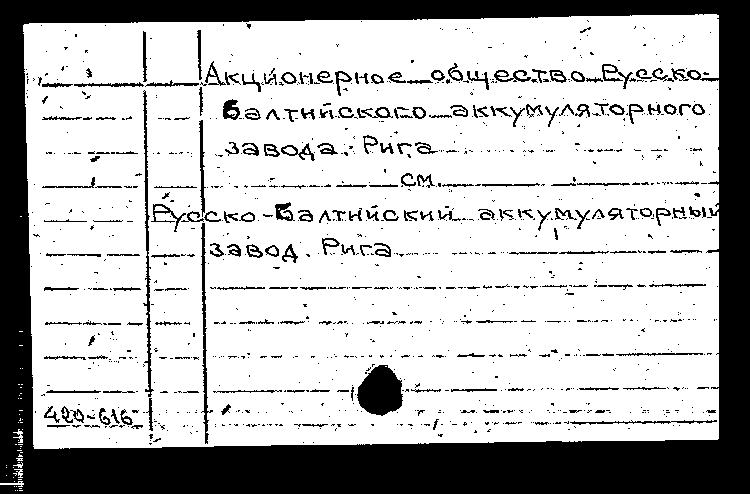 Акционерное общество Русско-
Балтийского аккумуляторного
завода. Рига
см
Русско-Балтийский аккумуляторный
завод. Рига
420-616